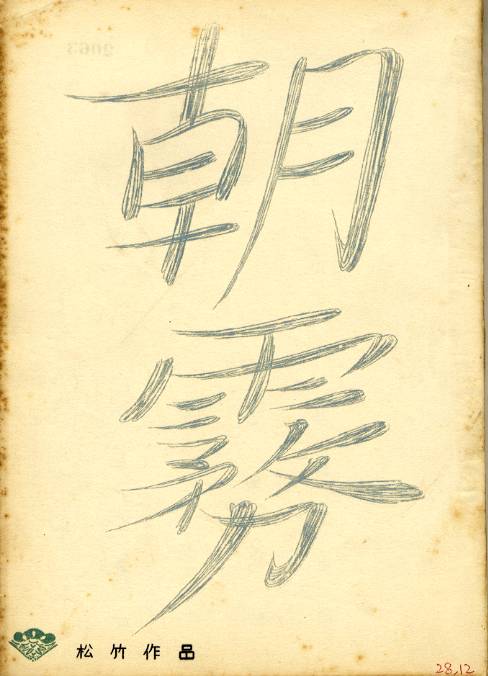 朝霧
松竹作品
28,12